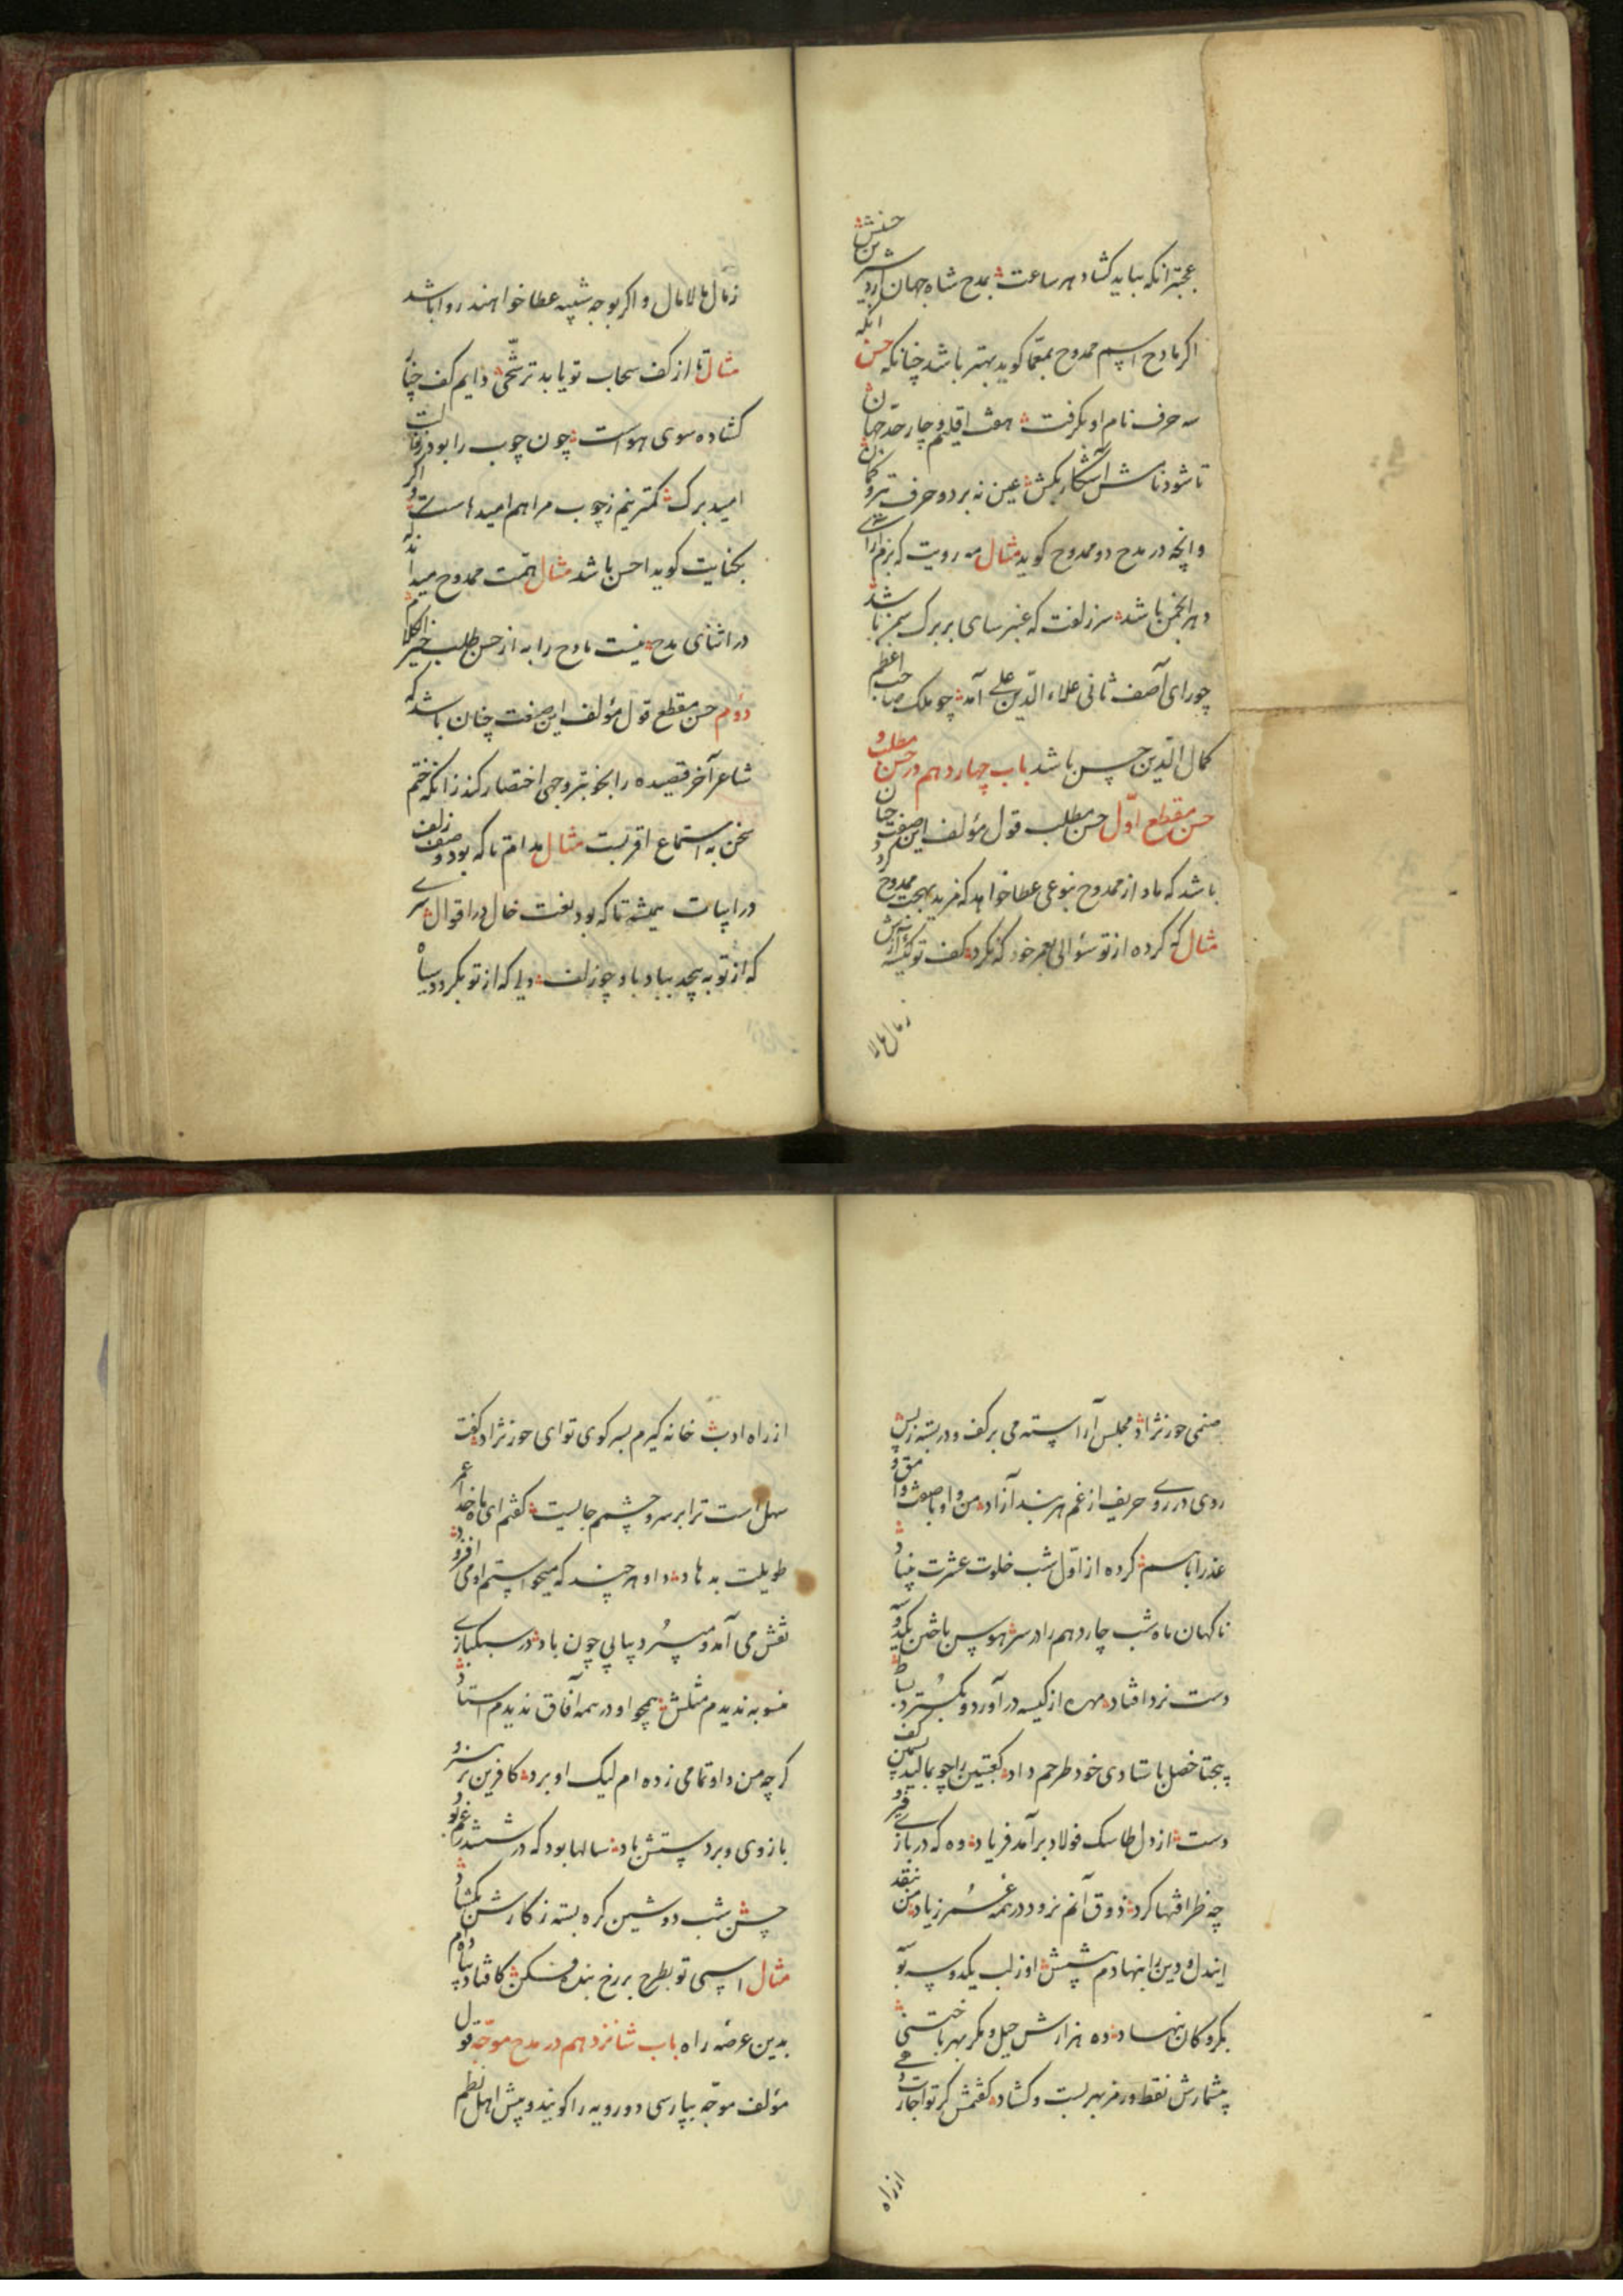 عجبتر انکه بباید کشاد هر ساعت بمدح شاه جهان
اکر مادح اسم ممدوح بمعما کوید بهتر باشد چنانکه حسن
سه حرف نام او بکرفت هفت اقلیم و چار حد جهان
تا شود نامش آشکار بکش عین نه بر دو حرف تیر و کمان
و انچه در مدح دو ممدوح کوید مثال مه رویت که بزم آرای
و هر انجمن باشد سر زلفت که عنبر سای بر برک سمن باشد
چو رای آصف ثانی علاء الدین علی آمد چو ملک صاحب اعظم
کمال الدین حسن باشد باب چهاردهم در حسن مطلب و
حسن مقطع اول حسن مطلب قول مؤلف این صفت چنان
باشد که مادح از ممدوح بنوعی عطا خواهد که مزید بهجت ممدوح کردد
مثال که کرده از تو سؤالی بعمر خود که نکرد کف تو کیسه آزش
زمال مالا
زمال مالامال و اکر بوجه شبیه عطا خواهند روا باشد
مثال تا از کف سحاب تو یابد ترشحی دایم کف چنار
کشاده سوی هواست چون چوب را بود ز
امید برک کمتر نیم ز چوب مرا هم امیدهاست و اکر
بکنایت کوید احسن باشد مثال همت ممدوح میداند که
در اثنای مدح نیست مادح را به از حسن طلب خیر الکلام
دوم حسن مقطع قول مؤلف این صفت چنان باشد که
شاعر آخر قصیده را بخوبتر وجهی اختصار کند زانکه ختم
سخن به استماع اقربست مثال مدام تا که بود وصف زلف
در ابیات همیشه تا که بود نعت خال در اقوال سری
که از تو به پیچد بباد باد چو زلف دلی که از تو بکردد سیاه
صنمی حور نژاد مجلس آراسته می بر کف و در بسته ز پس
روی در روی حریف از غم هر بند آزاد من و او با صفت وامق و
عذرا باسم کرده از اول شب خلوت عشرت بنیاد
ناکهان ماه شب چاردهم را در سر هوس باختن یکدو سه
دست نرد افتاد مهره از کیسه در آورد و بکسترد بساط
پنجتا خصل باستادی خود طرحم داد کعبتین را چو بمالید بسیمین کف
دست از دل طاسک فولاد بر آمد فریاد وه که در بازی
چه ظرافتها کرد ذوق آنم نرود در همه عمر ز یاد من بنقد
ایندل و دین را بنهادم پیشش او ز لب یکدو سه بوسه
بکروکان بنهاد ده هزارش حیل و مکر بهر باختنی
بیشمارش نقط و رمز بهر بست و کشاد کفتمش کر تو اجازت دهی
از راه
از راه ادب خانه کیرم بسر کوی تو ای حور نژاد کفت
سهل است ترا بر سر و چشمم جالیست کفتم ای ماه خدا عمر
طویلت بدهاد داو هر چند که میخواستم او می افزود
نقش می آمد و میبرد پیاپی چون باد در سبکبازی
منسوبه ندیدم مثلش همچو او در همه آفاق ندیدم استاد
کر چه من داو تمامی زده ام لیک او برد کافرین بر هنر و
بازوی و بر دستش باد سالها بود که در ششدر غم بود
حسن شب دوشین کره بسته ز کارش بکشاد
مثال اسبی تو بطرح بر رخ بنده فکن کافتاد پیاده ام
بدین عرضه راه باب شانزدهم در مدح موجه قول
مؤلف موجه بپارسی دو رویه را کویند و پیش اهل نظم